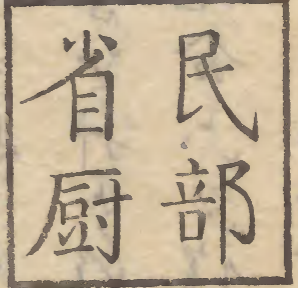 民部
省厨